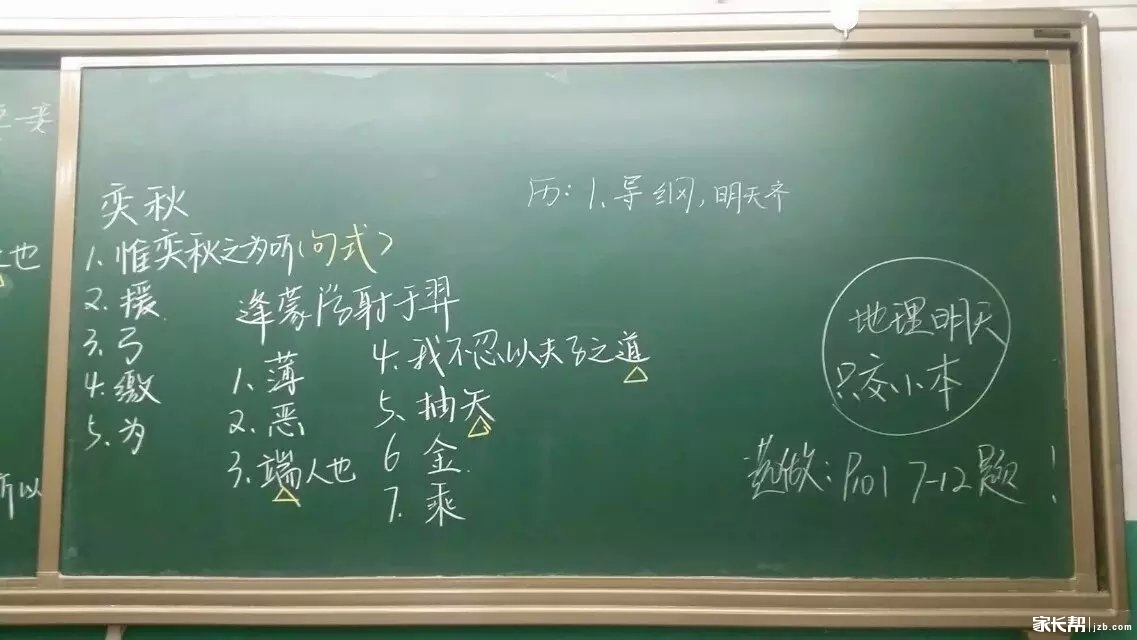 也
所以
奕秋
1. 惟奕秋之为听(句式)
2. 援
3. 弓
4. 缴
5. 为
逄蒙学射于羿
1. 薄
2. 恶
3. 端人也
4. 我不忍以夫子之道
5. 抽矢
6 金
7. 乘
历: 1. 导纲, 明天齐
地理明天
只交小本
选做: P101 7-12题!
家长帮 jzb.com